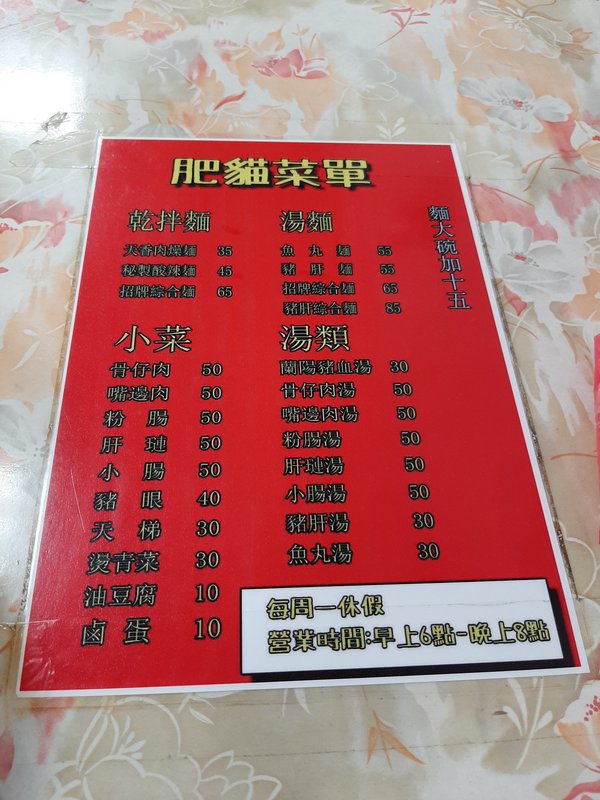 肥貓菜單
乾拌麵
天香肉燥麵 35
秘製酸辣麵 45
招牌綜合麵 65
湯麵
魚丸麵 55
豬肝麵 55
招牌綜合麵 65
豬肝綜合麵 85
麵大碗加十五
小菜
骨仔肉 50
嘴邊肉 50
粉腸 50
肝璉 50
小腸 50
豬眼 40
天梯 30
燙青菜 30
油豆腐 10
鹵蛋 10
湯類
蘭陽豬血湯 30
骨仔肉湯 50
嘴邊肉湯 50
粉腸湯 50
肝璉湯 50
小腸湯 50
豬肝湯 30
魚丸湯 30
每周一休假
營業時間:早上6點-晚上8點